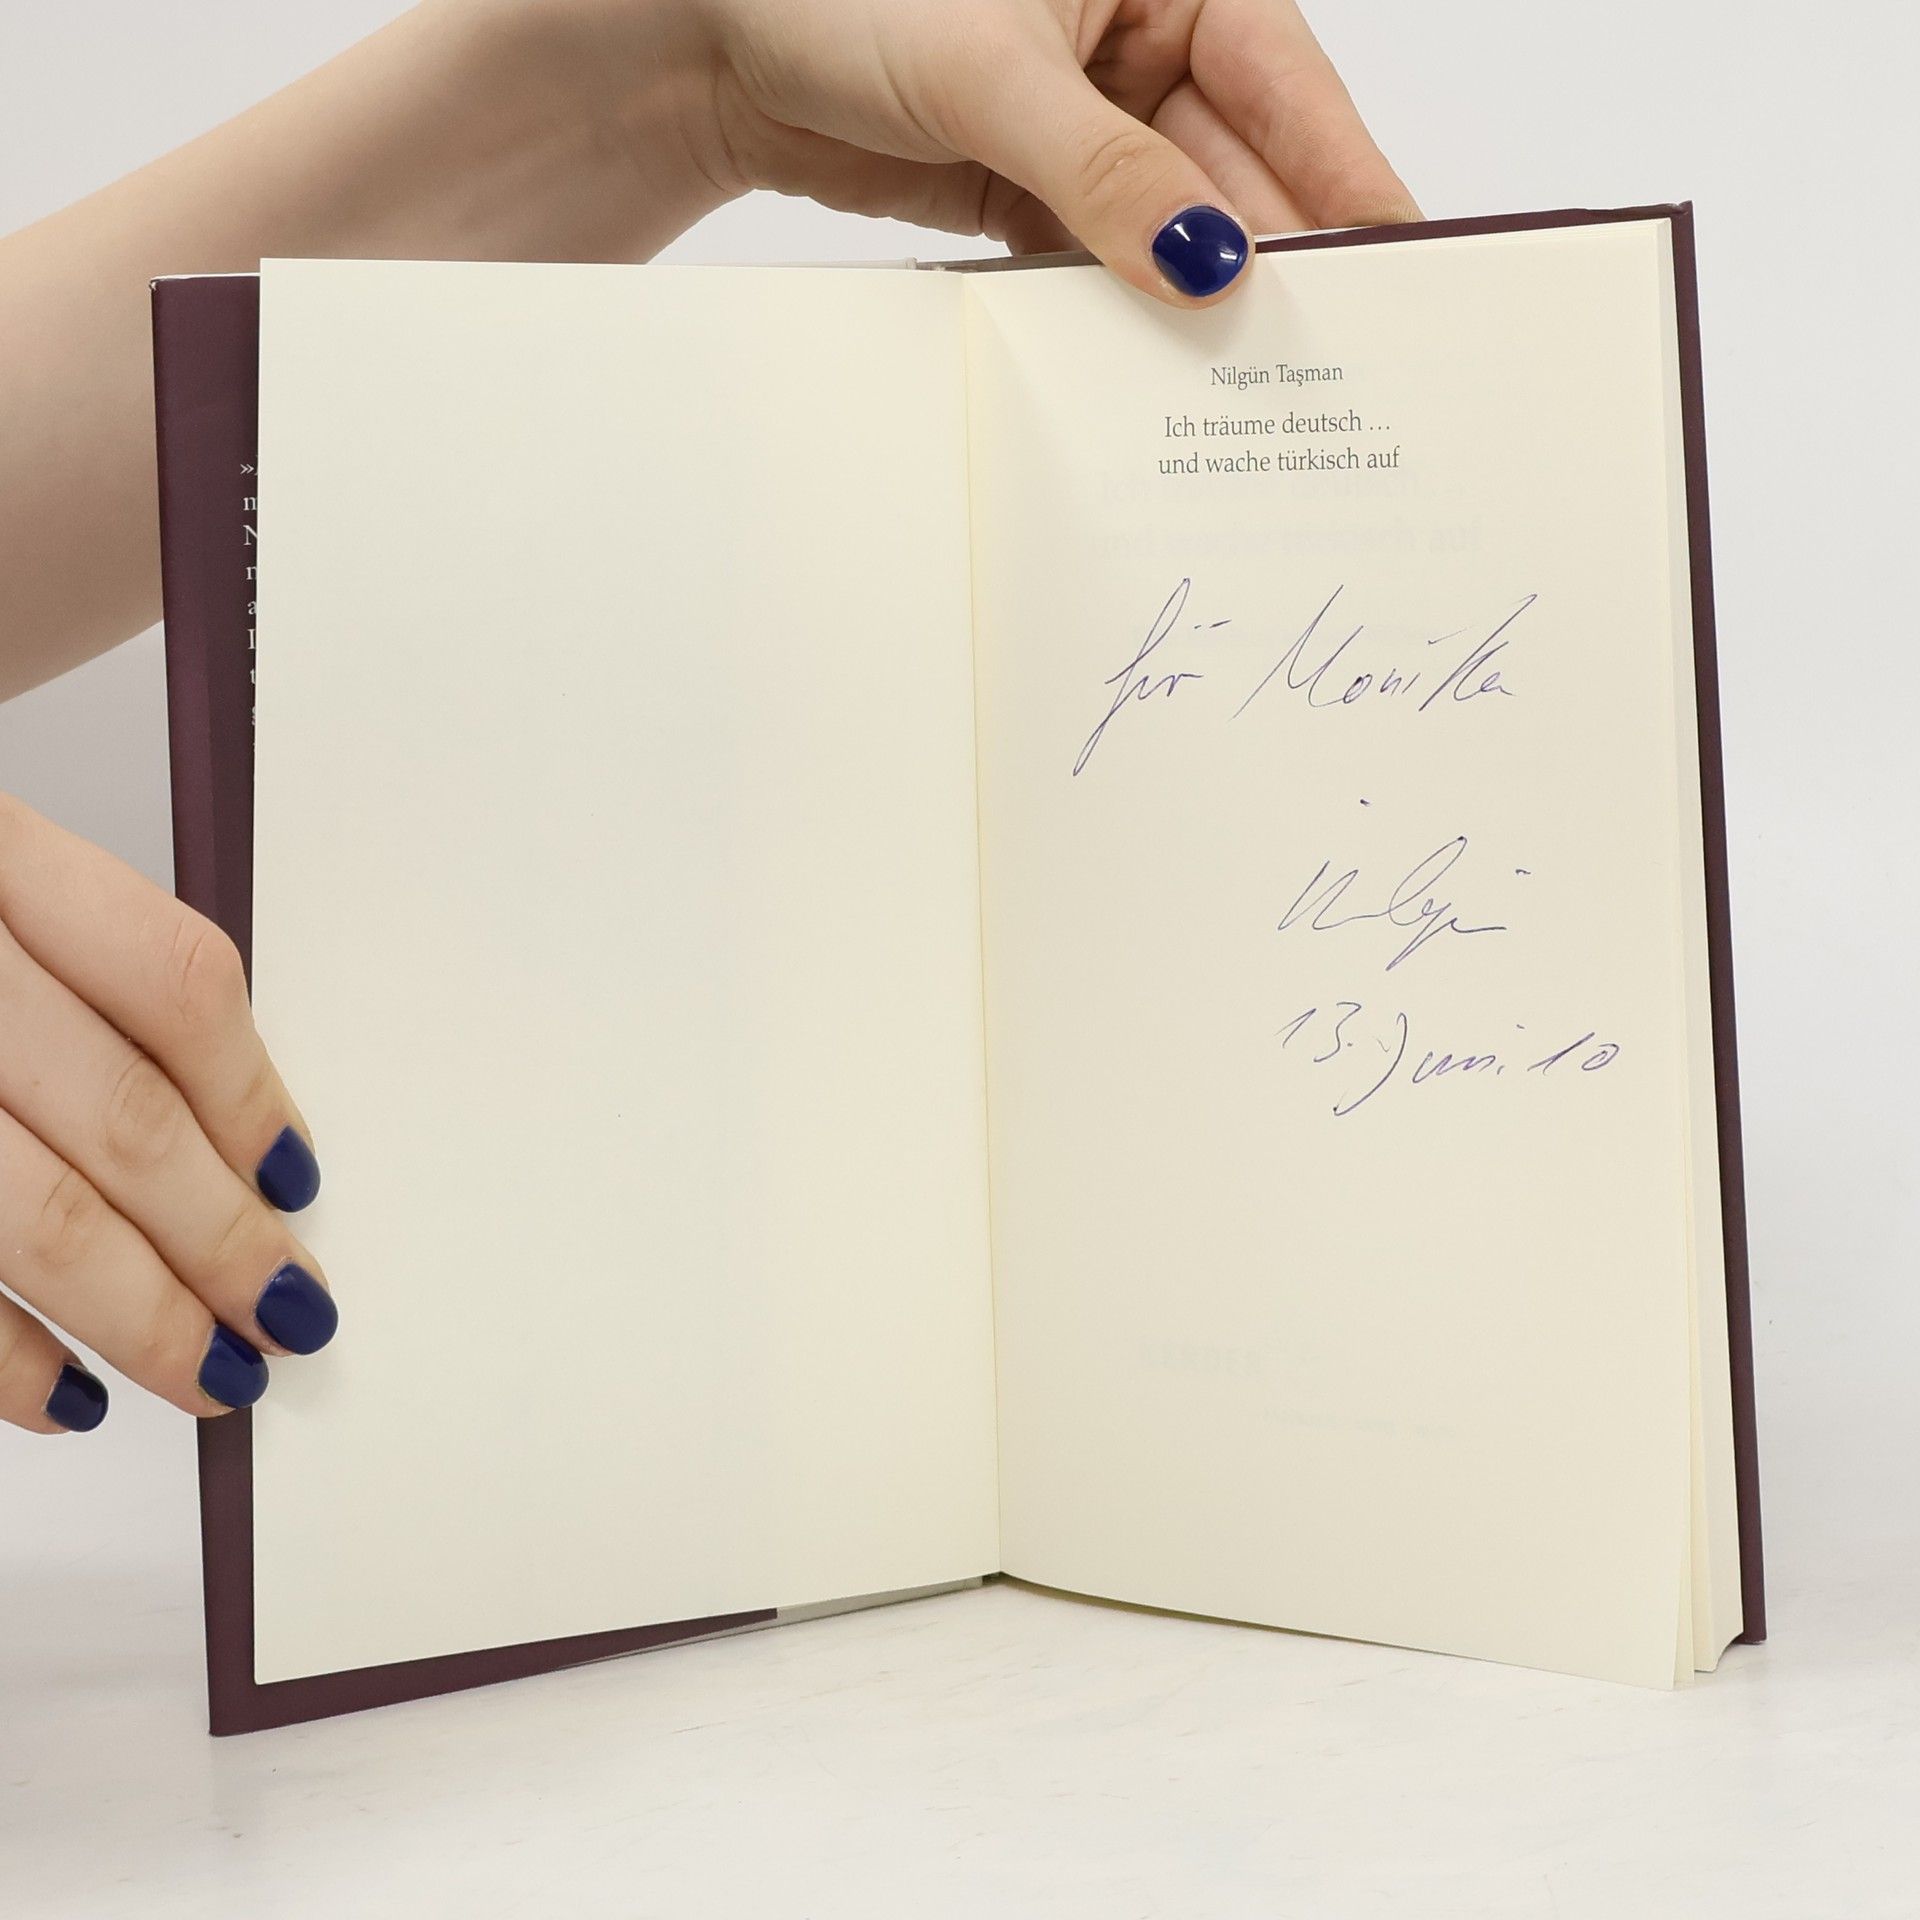 Nilgün Taşman
Ich träume deutsch …
und wache türkisch auf
für Monika
Nilgün
13. Juni 10